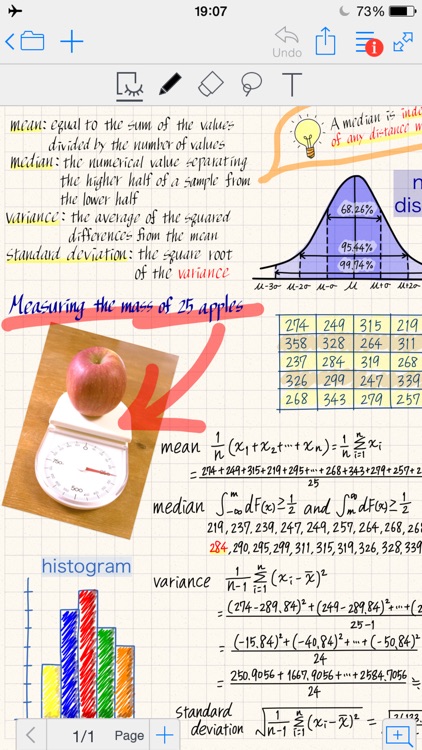 19:07
73%
Undo
T
mean: equal to the sum of the values
divided by the number of values
median: the numerical value separating
the higher half of a sample from
the lower half
variance: the average of the squared
differences from the mean
standard deviation: the square root
of the variance
A median is inde
of any distance m
n
dis
68.26%
95.44%
99.74%
μ-3σ μ-2σ μ-σ μ μ+σ μ+2σ
Measuring the mass of 25 apples
274 249 315 219
358 328 264 311
237 284 319 268
326 299 247 339
268 343 279 257
mean 1/n (x₁+x₂+···+xₙ)=1/n Σⁿᵢ₌₁ xᵢ
= 274+249+315+219+295+···+268+343+279+257+2
25
median ∫ᵐ₋∞ dF(x)≥1/2 and ∫^∞ₘ dF(x)≥1/2
219, 237, 239, 247, 249, 257, 264, 268, 268
284, 290, 295, 299, 311, 315, 319, 326, 328, 339
histogram
variance 1/n-1 Σⁿᵢ₌₁ (xᵢ-x̄)²
= (274-289.84)²+(249-289.84)²+···+(2
25-1
= (-15.84)²+(-40.84)²+···+(-50.84)²
24
= 250.9056+1667.9056+···+2584.7056
24
standard
deviation √1/n-1 Σⁿᵢ₌₁ (xᵢ-x̄)² =
1/1 Page